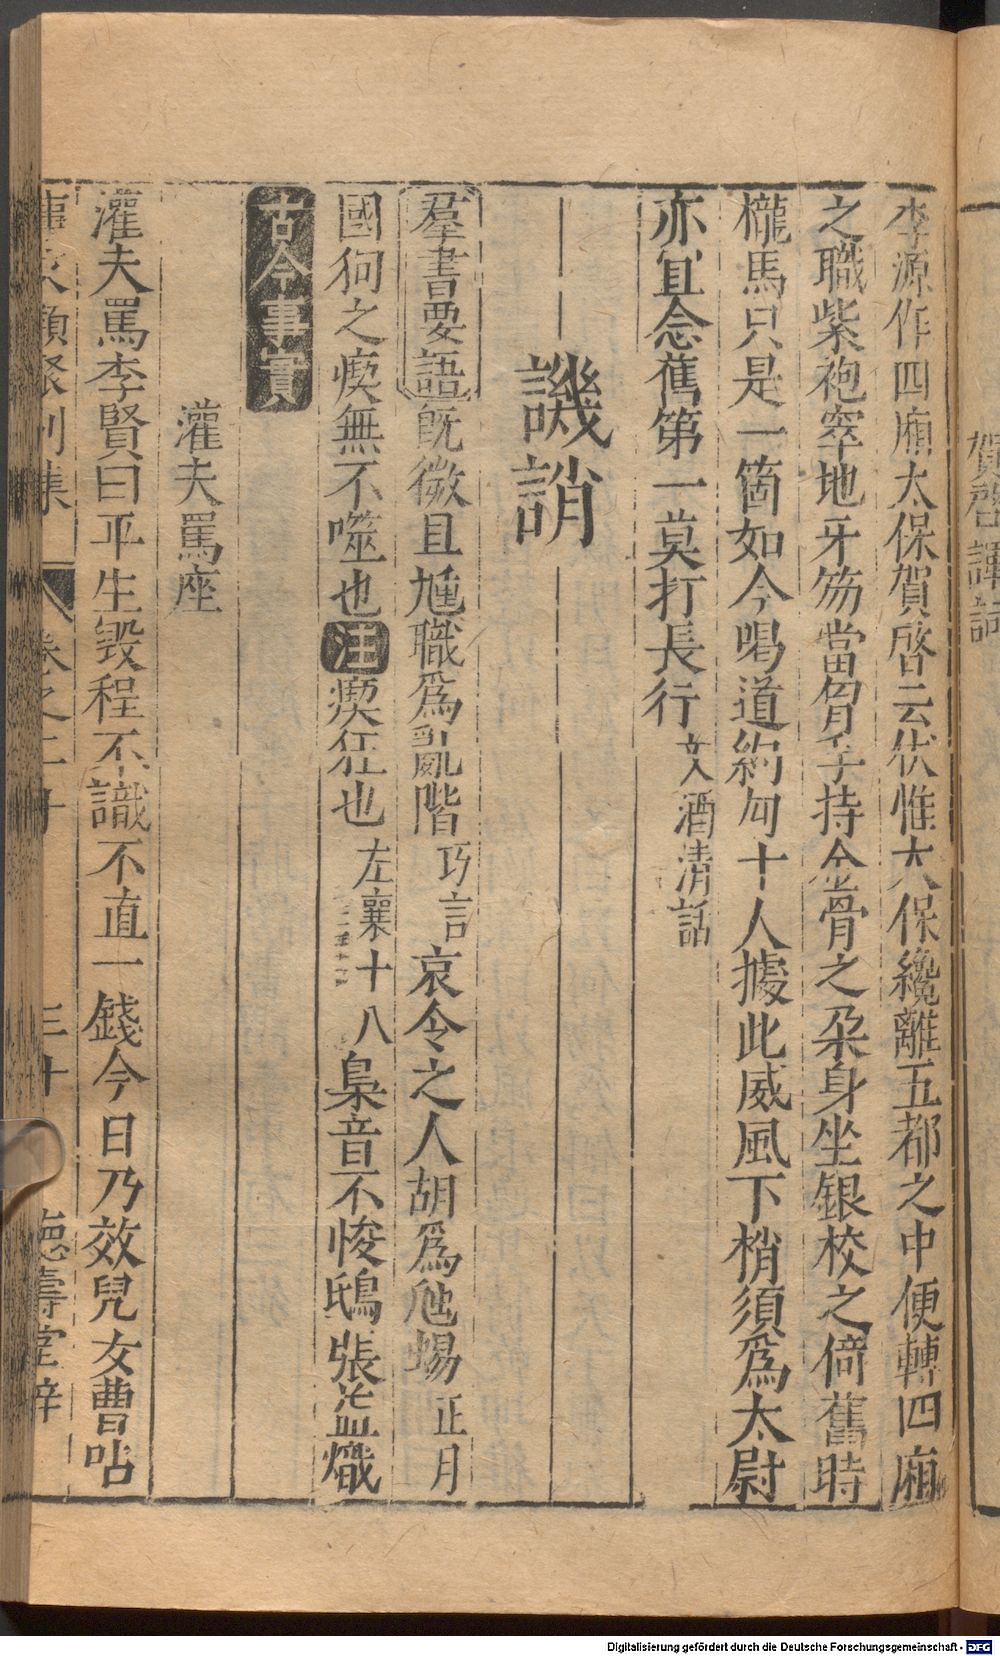 賀啓譚詩
李源作四廂太保賀啓云伏惟太保纔離五都之中便轉四廂
之職紫袍窣地牙笏當胷手持金骨之朶身坐銀校之倚舊時
櫳馬只是一箇如今喝道約勾十人據此威風下梢須爲太尉
亦宜念舊第一莫打長行文酒清話
譏誚
羣書要語旣微且尰職爲亂階巧言哀今之人胡爲虺蜴正月
國狗之瘈無不噬也注瘈狂也左襄十八梟音不悛鴟張益熾
古今事實
灌夫罵座
灌夫罵李賢曰平生毀程不識不直一錢今日乃效兒女曹呫
事文類聚別集 卷之二十 三十 德壽堂梓
Digitalisierung gefördert durch die Deutsche Forschungsgemeinschaft - DFG